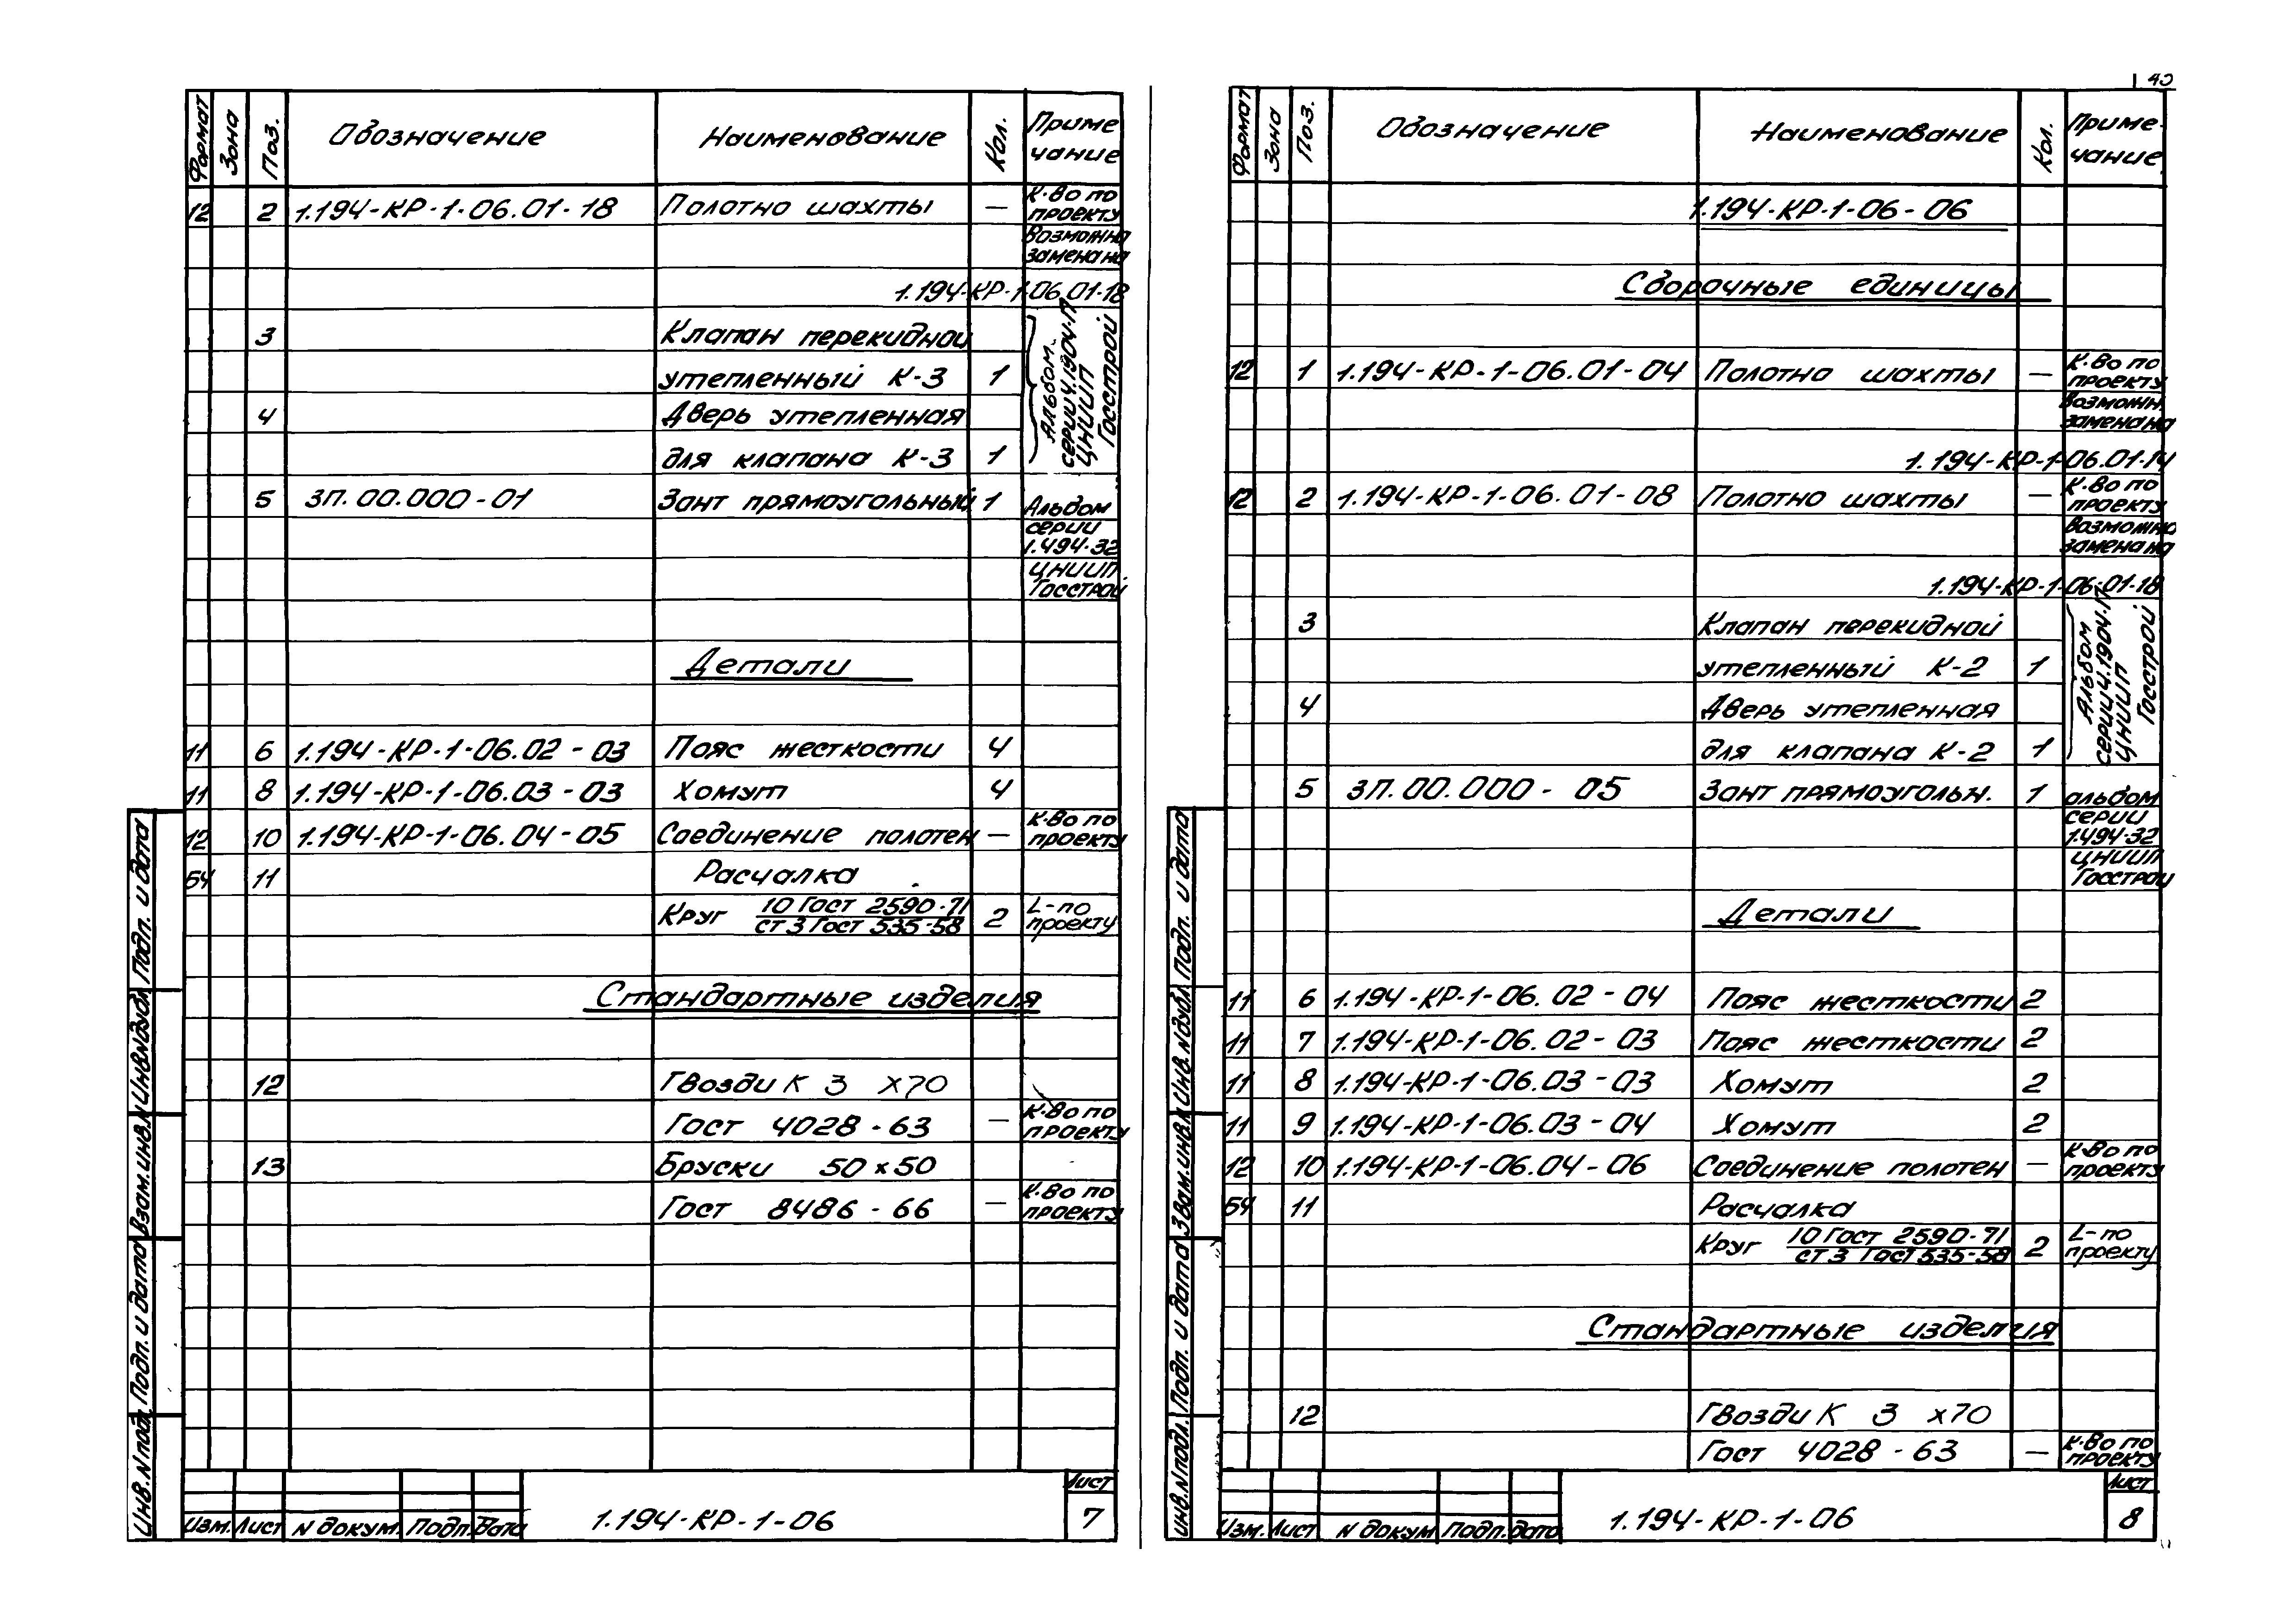 40
Формат Зона Поз. Обозначение Наименование Кол. Приме
чание
12 2 1.194-КР-1-06.01-18 Полотно шахты — К-во по
проекту
Возможна
замена на
1.194-КР-1-06.01-18
3 Клапан перекидной
утепленный К-3 1
4 Дверь утепленная
для клапана К-3 1
Альбом
серии 4.1904-П
ЦНИИП
Госстрой
5 ЗП.00.000-01 Зонт прямоугольный 1 Альбом
серии
1.494-32
ЦНИИП
Госстрой
Детали
11 6 1.194-КР-1-06.02-03 Пояс жесткости 4
11 8 1.194-КР-1-06.03-03 Хомут 4
12 10 1.194-КР-1-06.04-05 Соединение полотен — К-во по
проекту
БЧ 11 Расчалка
Круг 10 Гост 2590-71 2 L-по
ст 3 Гост 535-58 проекту
Стандартные изделия
12 Гвозди К 3 х70
Гост 4028-63 — К-во по
проекту
13 Бруски 50х50
Гост 8486-66 — К-во по
проекту
Подп. и дата
Инв.№дубл.
Взам.инв.№
Подп. и дата
Инв.№подл.
Изм. Лист № докум. Подп. Дата
1.194-КР-1-06
Лист
7
Формат Зона Поз. Обозначение Наименование Кол. Приме-
чание
1.194-КР-1-06-06
Сборочные единицы
12 1 1.194-КР-1-06.01-04 Полотно шахты — К-во по
проекту
Возможн.
замена на
1.194-КР-1-06.01-14
12 2 1.194-КР-1-06.01-08 Полотно шахты — К-во по
проекту
Возможно
замена на
1.194-КР-1-06-01-18
3 Клапан перекидной
утепленный К-2 1
4 Дверь утепленная
для клапана К-2 1
Альбом
серии 4.1904-П
ЦНИИП
Госстрой
5 ЗП.00.000-05 Зонт прямоугольн. 1 альбом
серии
1.494-32
ЦНИИП
Госстрой
Детали
11 6 1.194-КР-1-06.02-04 Пояс жесткости 2
11 7 1.194-КР-1-06.02-03 Пояс жесткости 2
11 8 1.194-КР-1-06.03-03 Хомут 2
11 9 1.194-КР-1-06.03-04 Хомут 2
12 10 1.194-КР-1-06.04-06 Соединение полотен — К-во по
проекту
БЧ 11 Расчалка
Круг 10 Гост 2590-71 2 L-по
ст 3 Гост 535-58 проекту
Стандартные изделия
12 Гвозди К 3 х70
Гост 4028-63 — К-во по
проекту
Подп. и дата
Инв.№дубл.
Взам.инв.№
Подп. и дата
Инв.№подл.
Изм. Лист № докум. Подп. Дата
1.194-КР-1-06
Лист
8